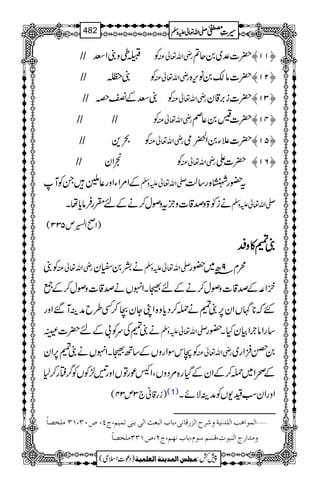 سیرتِ مصطفیٰ صلی اللہ تعالیٰ علیہ وسلم 482
﴿۱۱﴾ حضرت عدی بن حاتم رضی اللہ تعالیٰ عنہ کو قبیلہ طی و بنی اسعد //
﴿۱۲﴾ حضرت مالک بن نویرہ رضی اللہ تعالیٰ عنہ کو بنی حنظلہ //
﴿۱۳﴾ حضرت زبرقان رضی اللہ تعالیٰ عنہ کو بنی سعد کے نصف حصہ //
﴿۱۴﴾ حضرت قیس بن عاصم رضی اللہ تعالیٰ عنہ کو // //
﴿۱۵﴾ حضرت علاء بن الحضرمی رضی اللہ تعالیٰ عنہ کو بحرین //
﴿۱۶﴾ حضرت علی رضی اللہ تعالیٰ عنہ کو نجران //
یہ حضور شہنشاہ رسالت صلی اللہ تعالیٰ علیہ وسلم کے امراء اور عاملین ہیں جن کو آپ
صلی اللہ تعالیٰ علیہ وسلم نے زکوٰۃ و صدقات و جزیہ وصول کرنے کے لئے مقرر فرمایا تھا۔
(اصح السیر ص ۳۳۵)
بنی تمیم کا وفد
محرم ۹ھ میں حضور صلی اللہ تعالیٰ علیہ وسلم نے بشر بن سفیان رضی اللہ تعالیٰ عنہ کو بنی
خزاعہ کے صدقات وصول کرنے کے لئے بھیجا۔ انہوں نے صدقات وصول کرکے جمع
کئے کہ ناگہاں ان پر بنی تمیم نے حملہ کردیا وہ اپنی جان بچا کر کسی طرح مدینہ آگئے اور
سارا ماجرا بیان کیا۔ حضور صلی اللہ تعالیٰ علیہ وسلم نے بنی تمیم کی سرکوبی کے لئے حضرت عیینہ
بن حصن فزاری رضی اللہ تعالیٰ عنہ کو پچاس سواروں کے ساتھ بھیجا۔ انہوں نے بنی تمیم پر ان
کے صحرا میں حملہ کرکے ان کے گیارہ مردوں، اکیس عورتوں اور تیس لڑکوں کو گرفتار کرلیا
اور ان سب قیدیوں کو مدینہ لائے۔ (1) (زرقانی ج۳ ص۴۳)
.....المواهب اللدنية وشرح الزرقانی، باب البعث الی بنی تميم، ج٤، ص٣٠،٣١ ملخصاً
ومدارج النبوت، قسم سوم، باب نهم، ج٢، ص٣٣١ ملخصاً
پیش کش: مجلس المدینۃ العلمیۃ (دعوتِ اسلامی)